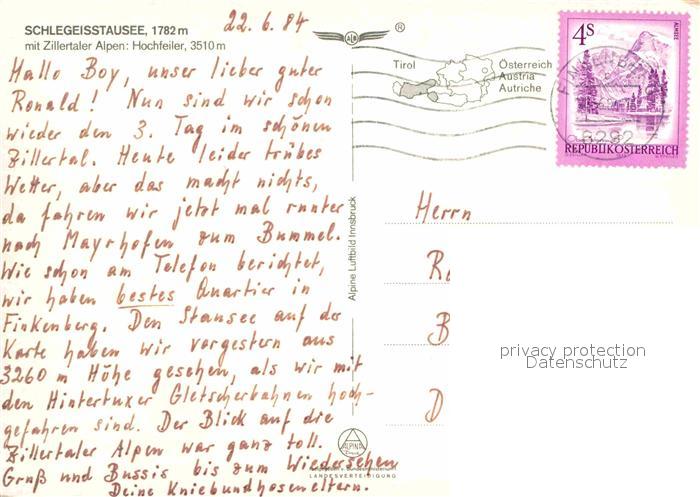 SCHLEGEISSTAUSEE, 1782 m
mit Zillertaler Alpen: Hochfeiler, 3510 m
22.6.84
Hallo Boy, unser lieber guter
Ronald! Nun sind wir schon
wieder den 3. Tag im schönen
Zillertal. Heute leider trübes
Wetter, aber das macht nichts,
da fahren wir jetzt mal runter
nach Mayrhofen zum Bummel.
Wie schon am Telefon berichtet,
wir haben bestes Quartier in
Finkenberg. Den Stausee auf der
Karte haben wir vorgestern aus
3260 m Höhe gesehen, als wir mit
den Hintertuxer Gletscherbahnen hoch-
gefahren sind. Der Blick auf die
Zillertaler Alpen war ganz toll.
Gruß und Bussis bis zum Wiedersehen
Deine Kniebundhoseneltern.
®
Tirol
Österreich
Austria
Autriche
4S
ALMSEE
6292
REPUBLIK ÖSTERREICH
Alpine Luftbild Innsbruck
Herrn
R
B
D
privacy protection
Datenschutz
ALPINE
LANDESVERTEIDIGUNG